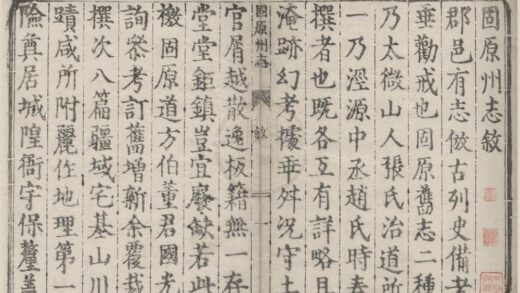 固原州志敘
郡邑有志倣古列史備考
垂勸戒也固原舊志二種
乃太微山人張氏治道所
一乃涇源中丞趙氏時春
撰者也既各互有詳略且
跡幻考據乖舛況守土
固原州志 敘
官屑越散逸板籍無一存
堂堂鉅鎮豈宜廢缺若此
檄固原道方伯董君國光
詢參考訂舊增新余覆裁
撰次八篇疆域宅基山川
蹟咸所附麗作地理第一
險奠居城隍衙宇保釐